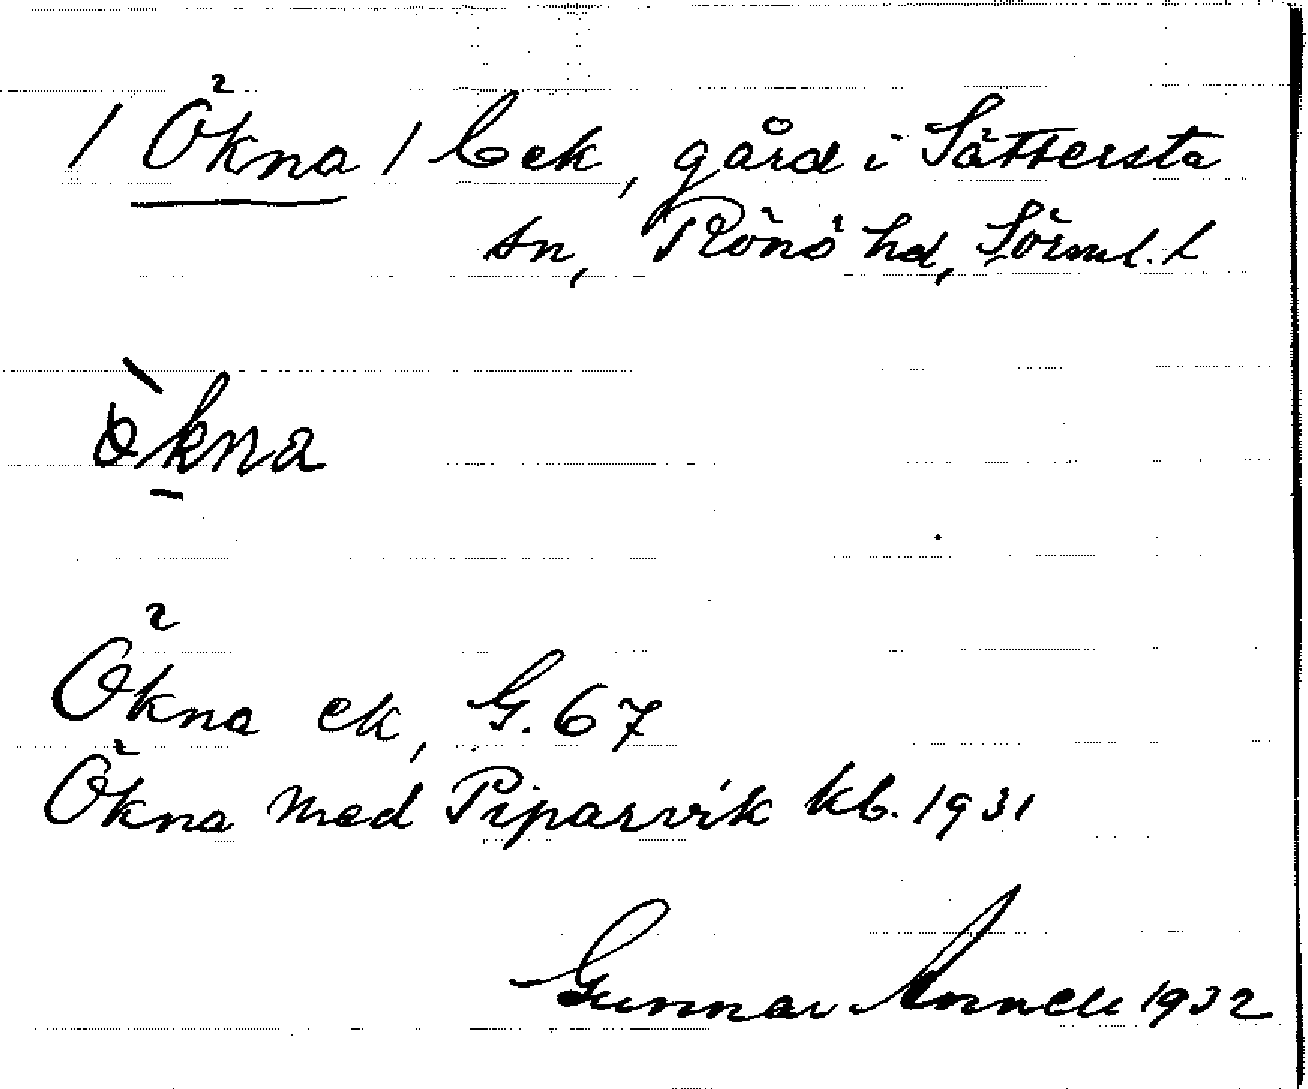 / Ökna / C ek, gård i Sättersta
sn, Rönö hd, Sörml. l
ö̀kna
Ökna ek, G. 67
Ökna med Piparvik kb. 1931
Gunnar 1932